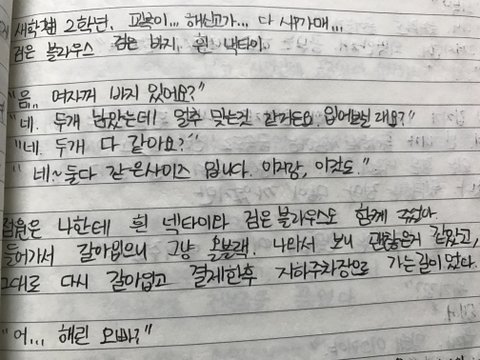 새학기 2학년. 교복이... 해신고가... 다 사가매...
검은 블라우스 검은 바지, 흰 넥타이.
"음.. 여자꺼 바지 있어요?"
"네. 두개 남았는데 얼추 맞는것 같거든요. 입어보실래요?"
"네. 두개 다 같아요?"
"네~ 둘다 같은사이즈 입니다. 이거랑, 이것도."
점원은 나한테 흰 넥타이와 검은블라우스도 함께 주었다.
들어가서 갈아입으니 그냥 올블랙. 나와서 보니 괜찮은거 같았고,
그대로 다시 갈아입고 결제한후 지하주차장으로 가는길이었다.
"어... 해린 오빠?"